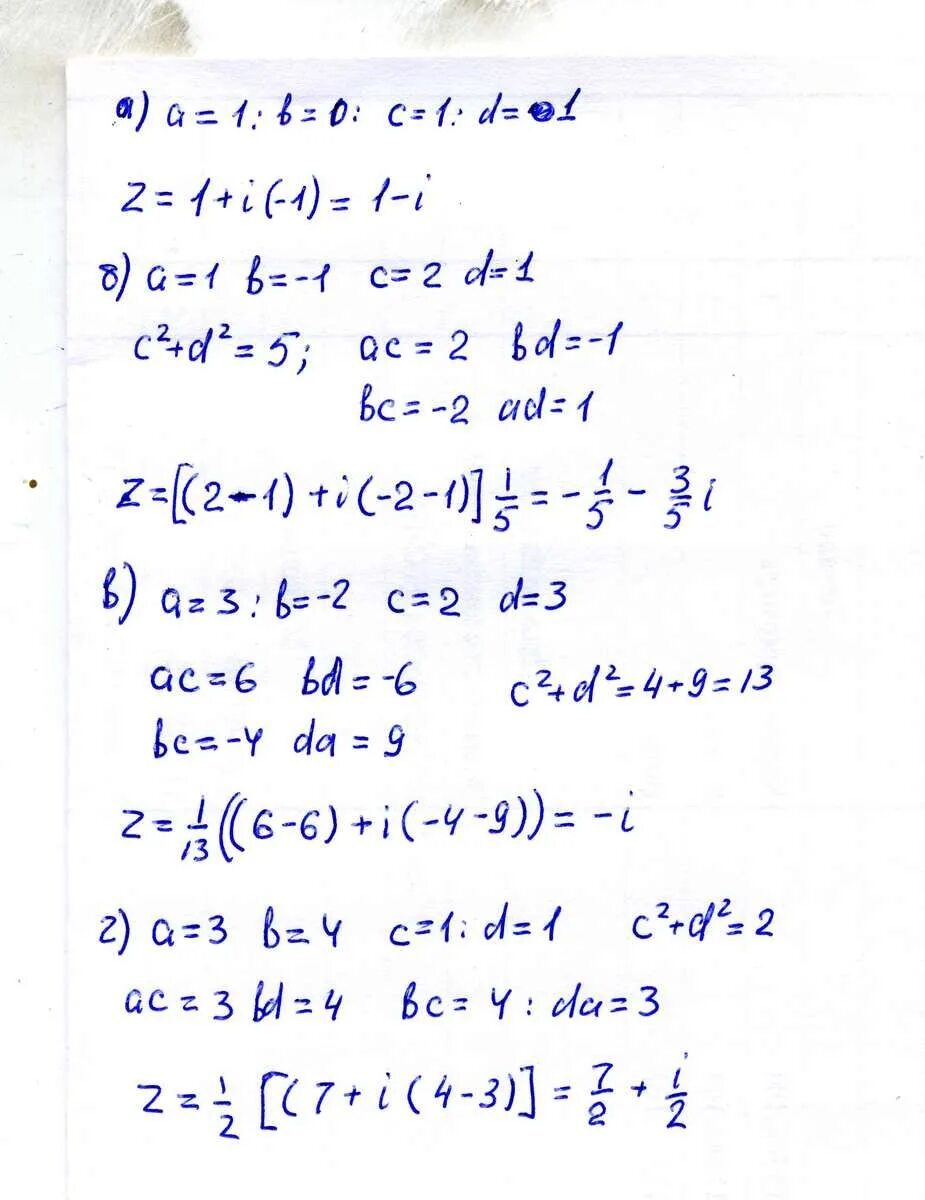 а) a = 1; b = 0; c = 1; d = 1
z = 1 + i(-1) = 1 - i
б) a = 1 b = -1 c = 2 d = 1
c² + d² = 5; ac = 2 bd = -1
bc = -2 ad = 1
z = [(2 - 1) + i(-2 - 1)] 1/5 = - 1/5 - 3/5 i
в) a = 3; b = -2 c = 2 d = 3
ac = 6 bd = -6 c² + d² = 4 + 9 = 13
bc = -4 da = 9
z = 1/13 ((6 - 6) + i(-4 - 9)) = -i
г) a = 3 b = 4 c = 1; d = 1 c² + d² = 2
ac = 3 bd = 4 bc = 4; da = 3
z = 1/2 [(7 + i(4 - 3)] = 7/2 + i/2